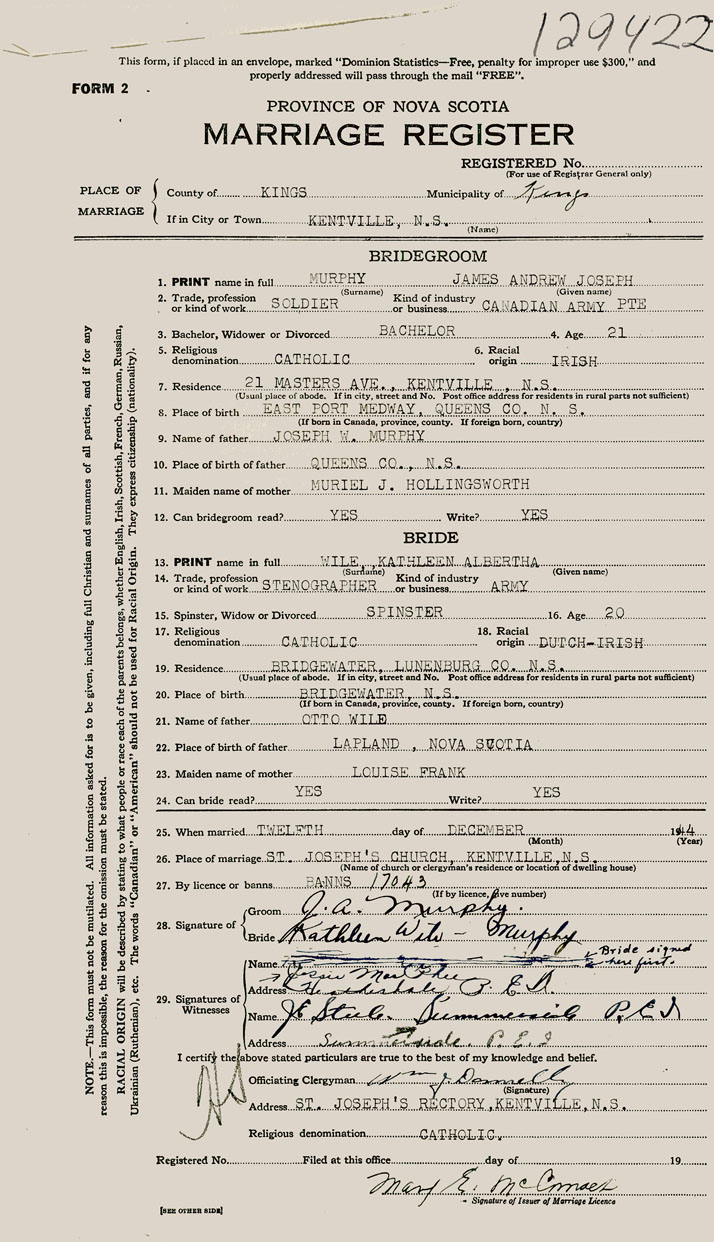 129422
This form, if placed in an envelope, marked "Dominion Statistics—Free, penalty for improper use $300," and
properly addressed will pass through the mail "FREE".
FORM 2
PROVINCE OF NOVA SCOTIA
MARRIAGE REGISTER
REGISTERED No.
(For use of Registrar General only)
PLACE OF MARRIAGE
County of KINGS Municipality of Kings
If in City or Town KENTVILLE, N.S.
(Name)
BRIDEGROOM
1. PRINT name in full MURPHY JAMES ANDREW JOSEPH
(Surname) (Given name)
2. Trade, profession or kind of work SOLDIER Kind of industry or business CANADIAN ARMY PTE
3. Bachelor, Widower or Divorced BACHELOR 4. Age 21
5. Religious denomination CATHOLIC 6. Racial origin IRISH
7. Residence 21 MASTERS AVE., KENTVILLE, N.S.
(Usual place of abode. If in city, street and No. Post office address for residents in rural parts not sufficient)
8. Place of birth EAST PORT MEDWAY, QUEENS CO. N. S.
(If born in Canada, province, county. If foreign born, country)
9. Name of father JOSEPH W. MURPHY
10. Place of birth of father QUEENS CO., N.S.
11. Maiden name of mother MURIEL J. HOLLINGSWORTH
12. Can bridegroom read? YES Write? YES
BRIDE
13. PRINT name in full WILE, KATHLEEN ALBERTHA
(Surname) (Given name)
14. Trade, profession or kind of work STENOGRAPHER Kind of industry or business ARMY
15. Spinster, Widow or Divorced SPINSTER 16. Age 20
17. Religious denomination CATHOLIC 18. Racial origin DUTCH-IRISH
19. Residence BRIDGEWATER, LUNENBURG CO. N.S.
(Usual place of abode. If in city, street and No. Post office address for residents in rural parts not sufficient)
20. Place of birth BRIDGEWATER, N.S.
(If born in Canada, province, county. If foreign born, country)
21. Name of father OTTO WILE
22. Place of birth of father LAPLAND , NOVA SCOTIA
23. Maiden name of mother LOUISE FRANK
24. Can bride read? YES Write? YES
25. When married TWELFTH day of DECEMBER 1944
(Month) (Year)
26. Place of marriage ST. JOSEPH'S CHURCH, KENTVILLE, N.S.
(Name of church or clergyman's residence or location of dwelling house)
27. By licence or banns BANNS 17043
(If by licence, give number)
28. Signature of
Groom J. A. Murphy.
Bride Kathleen Wile - Murphy
Bride signed here first.
29. Signatures of Witnesses
Name
Address P. E. I.
Name Summerside P.E.I
Address Summerside. P.E.I
I certify the above stated particulars are true to the best of my knowledge and belief.
Officiating Clergyman Wm J. Donnelly
(Signature)
Address ST. JOSEPH'S RECTORY, KENTVILLE, N.S.
Religious denomination CATHOLIC.
Registered No. Filed at this office day of 19
Mary E.
Signature of Issuer of Marriage Licence
[SEE OTHER SIDE]
NOTE.—This form must not be mutilated. All information asked for is to be given, including full Christian and surnames of all parties, and if for any
reason this is impossible, the reason for the omission must be stated.
RACIAL ORIGIN will be described by stating to what people or race each of the parents belongs, whether English, Irish, Scottish, French, German, Russian,
Ukrainian (Ruthenian), etc. The words "Canadian" or "American" should not be used for Racial Origin. They express citizenship (nationality).